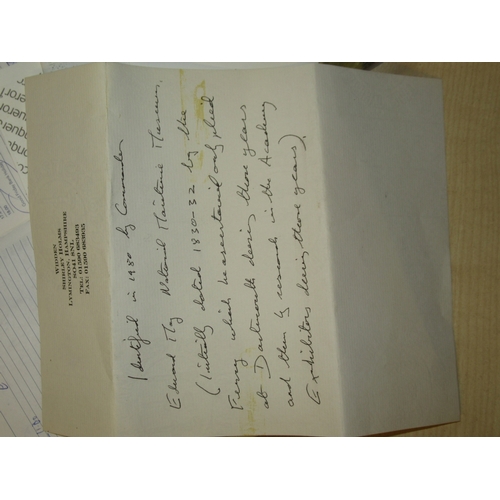 WIDDEN
SHIRLEY HOLMS
LYMINGTON, HAMPSHIRE
SO41 8NL
TEL: 01590 683493
FAX: 01590 683935
Identified in 1980 by Commander
Edward May National Maritime Museum,
(initially dated 1830-32 by the
Ferry which he ascertained only plied
at Dartmouth during those years
and then by records in the Academy
Exhibitors during those years).